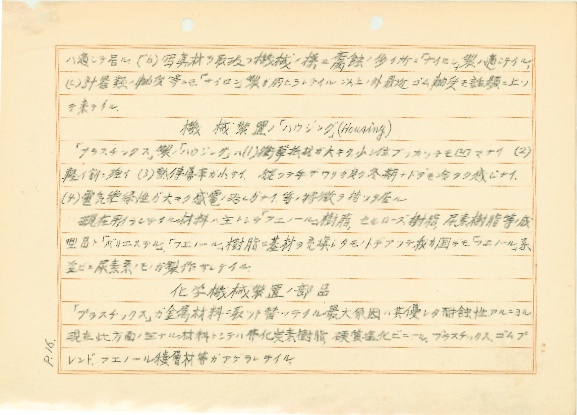 ハ適シテ居ル (6) 写真材ヲ取扱フ機械ノ様ニ腐蝕ノ多イ所ニ「ナイロン」製ハ適シテイル、
(7) 計器類ノ軸受等ニモ「ナイロン」製ガ用ヒラレテイル 以上ノ外最近ゴム軸受モ話題ニ上ツ
テ来テイル。
機械装置ノ「ハウジング」(Housing)
「プラスチックス」製ノ「ハウジング」ハ (1) 衝撃抵抗ガ大キク少シ位ブッカッテモ凹マナイ (2)
軽イ割ニ強イ (3) 熱伝導率ガ小サイ 従ッテ手ザワリヨク冬期ノトキデモ冷タク感ジナイ、
(4) 電気絶縁性ガ大キク感電ノ恐レガナイ等ノ特徴ヲ持ッテ居ル
現在用イラレテイル材料ハ主トシテ「フエノール」樹脂、セルローズ樹脂 尿素樹脂等ノ成
型品ト「ポリエステル」「フエノール」樹脂ニ基材ヲ充填シタモノトデアツテ我ガ国デモ「フエノール」系
並ビニ尿素系ノモノガ製作サレテイル。
化学機械装置ノ部品
「プラスチックス」ガ金属材料ニ取ツテ替ツテイル最大原因ハ其優レタ耐蝕性アルニヨル
現在此方面ノ主ナル材料トシテハ弗化炭素樹脂 硬質塩化ビニール、プラスチックス、ゴムブ
レンド、フエノール積層材等ガアゲラレテイル。
P.16.